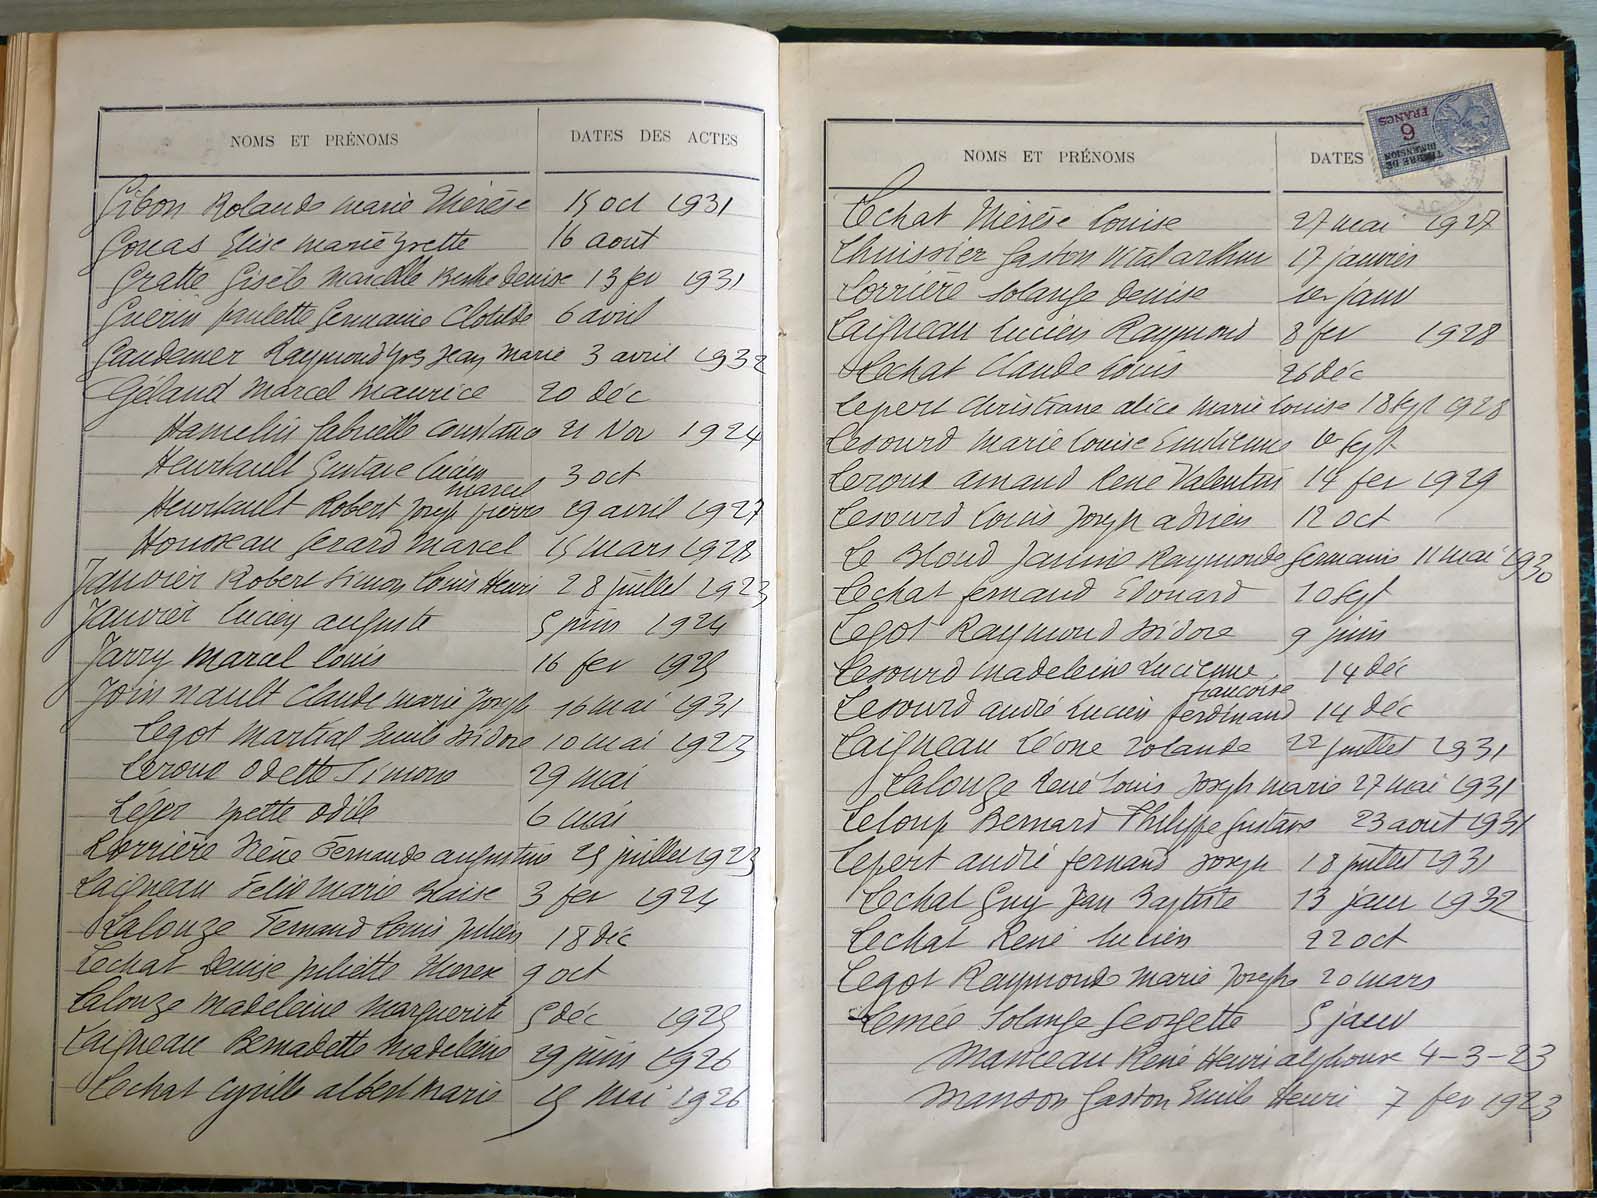 NOMS ET PRÉNOMS DATES DES ACTES
Gibon Rolande Marie Thérèse 15 oct 1931
Gouas Elise Marie Yvette 16 aout
Gratte Gisèle Marcelle Berthe Denise 13 fev 1931
Guérin Paulette Germaine Clotilde 6 avril
Gaudemer Raymond Yves Jean Marie 3 avril 1932
Géland Marcel Maurice 20 déc
Hamelin Gabrielle Constance 21 Nov 1924
Heurtault Gustave Lucien 3 oct
Marcel
Heurtault Robert Joseph Pierre 29 avril 1927
Housseau Gerard Marcel 15 mars 1928
Janvier Robert Simon Louis Henri 28 juillet 1923
Janvier Lucien auguste 5 juin 1924
Jarry Marcel Louis 16 fev 1925
Join nault Claude Marie Joseph 16 mai 1931
Legot Martial Emile Isidore 10 mai 1923
Leroux Odette Simone 29 mai
Léger Yvette Odile 6 mai
Lorrière Irène Fernande augustine 25 juillet 1923
Laigneau Felix Marie Blaise 3 fev 1924
Lalouze Fernand Louis Julien 18 déc
Lechat Denise Juliette 9 oct
Lalouze Madeleine Marguerite 5 déc 1925
Laigneau Bernadette Madeleine 29 juin 1926
Lechat Cyrille albert Marie 15 Mai 1926
NOMS ET PRÉNOMS DATES
TIMBRE DE DIMENSION
6 FRANCS
Lechat Thérèse Louise 27 mai 1927
Lhuissier Gaston Vital arthur 17 janvier
Lorrière Solange Denise 1er janv
Laigneau Lucien Raymond 8 fev 1928
Lechat Claude Louis 26 déc
Lepert Christiane alice Marie Louise 18 sept 1928
Lesourd Marie Louise Emilienne 1er sept
Leroux amand René Valentin 14 fev 1929
Lesourd Louis Joseph adrien 12 oct
Le Blond Jannine Raymonde Germaine 11 mai 1930
Lechat fernand Edouard 10 sept
Legot Raymond Isidore 9 juin
Lesourd Madeleine Lucienne 14 déc
françoise
Lesourd andré Lucien ferdinand 14 déc
Laigneau Léone Yolande 22 juillet 1931
Lalouze René Louis Joseph Marie 27 mai 1931
Leloup Bernard Philippe Gustave 23 aout 1931
Lepert andré fernand Joseph 18 juillet 1931
Lechat Guy Jean Baptiste 13 janv 1932
Lechat René Lucien 22 oct
Legot Raymonde Marie Josephe 20 mars
Lemée Solange Georgette 5 janv
Manceau René Henri alphonse 4-3-23
Manson Gaston Emile Henri 7 fev 1923